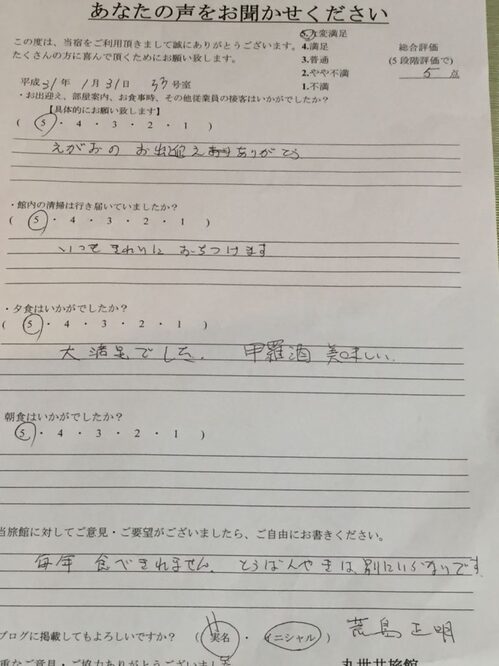 あなたの声をお聞かせください
この度は、当宿をご利用頂きまして誠にありがとうございます。
たくさんの方に喜んで頂くためにお願い致します。
5.大変満足
4.満足
3.普通
2.やや不満
1.不満
総合評価
(5段階評価で)
5 点
平成31年 1月31日 号室
・お出迎え、部屋案内、お食事時、その他従業員の接客はいかがでしたか?
【具体的にお願い致します】
( 5 ・ 4 ・ 3 ・ 2 ・ 1 )
えがおの お出迎え ありがとう
・館内の清掃は行き届いていましたか?
( 5 ・ 4 ・ 3 ・ 2 ・ 1 )
いつも きれいに おちつけます
・夕食はいかがでしたか?
( 5 ・ 4 ・ 3 ・ 2 ・ 1 )
大満足でした。 甲羅酒 美味しい。
朝食はいかがでしたか?
( 5 ・ 4 ・ 3 ・ 2 ・ 1 )
当旅館に対してご意見・ご要望がございましたら、ご自由にお書きください。
毎年 食べきれません。 とうばんやきは、別にいらないです
ブログに掲載してもよろしいですか? ( 実名 ・ イニシャル ) 荒島 正明
重なご意見・ご協力ありがとうございました
丸世井旅館